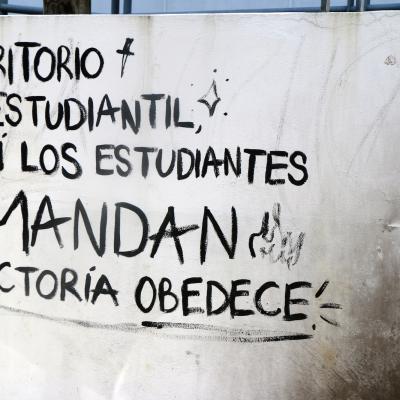 RITORIO
ESTUDIANTIL,
Í LOS ESTUDIANTES
MANDAN
CTORÍA OBEDECE